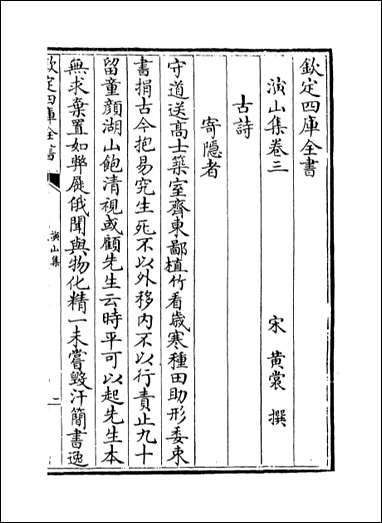 欽定四庫全書
演山集卷三
宋 黄裳 撰
古詩
寄隱者
守道送髙士築室齊東鄙植竹看歳寒種田助形委束
書捐古今抱易究生死不以外移内不以行責止九十
留童顔湖山飽清視或顧先生云時平可以起先生本
無求棄置如弊屣俄聞與物化精一未嘗毁汗簡書逸
欽定四庫全書
演山集